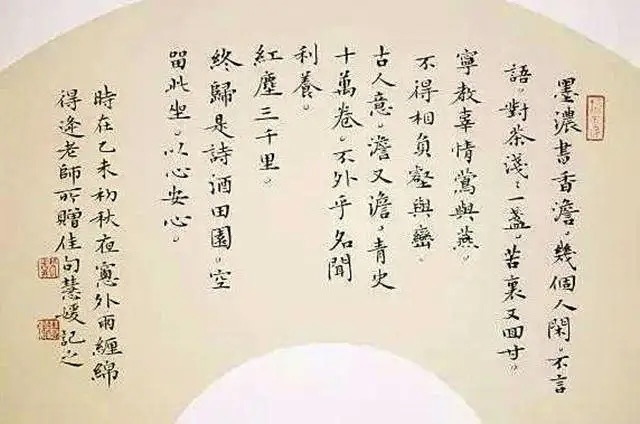 墨濃書香澹。幾個人閑。不言
語。對茶淺淺一盞。苦裏又回甘。
寧教辜情鶯與燕。
不得相負壑與巒。
古人意。澹又澹。青史
十萬卷。不外乎名聞
利養。
紅塵三千里。
終歸是詩酒田園。空
留此坐。以心安心。
時在乙未初秋夜窻外雨纏綿
得逢老師所贈佳句慧媛記之